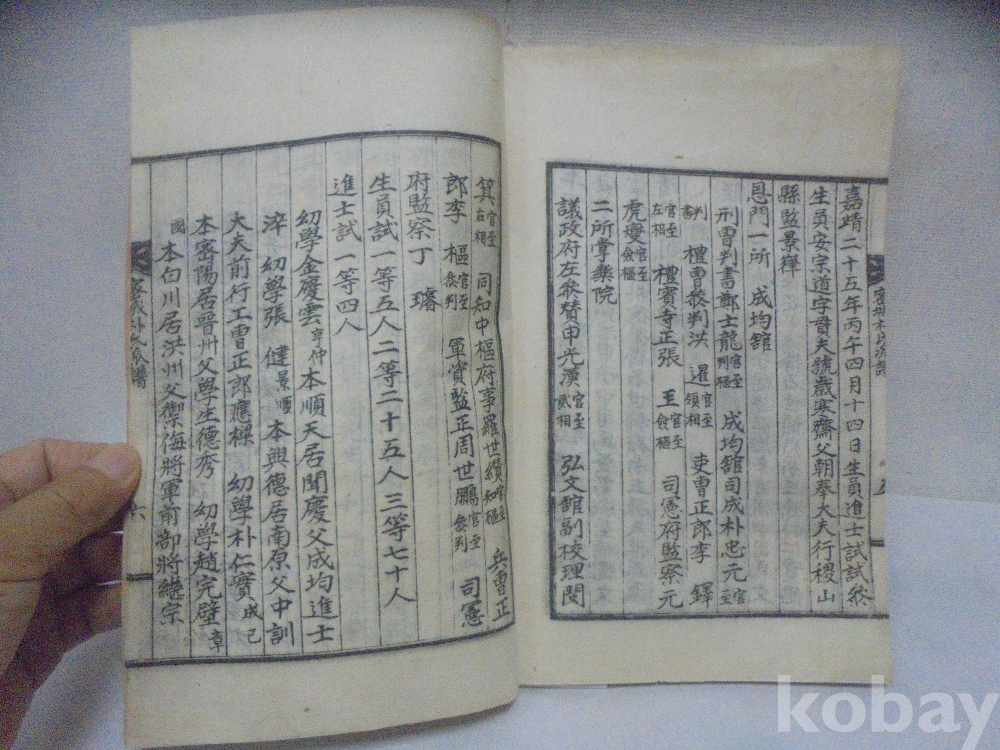 嘉靖二十五年丙午四月十四日生員進士試試券
生員安宗道字貴夫號歲寒齋父朝奉大夫行稷山
縣監景禪
恩門一所 成均舘
刑曹判書鄭士龍官至判樞 成均舘司成朴忠元官至
判書 禮曹叅判洪 暹官至領相 吏曹正郎李 鐸
官至左相 禮賓寺正張 玉官至僉樞 司憲府監察元
虎燮僉樞
二所掌樂院
議政府左叅賛申光漢官至貳相 弘文舘副校理閔
箕官至左相 同知中樞府事羅世纉官至知樞 兵曹正
郎李 樞官至叅判 軍資監正周世鵬官至叅判 司憲
府監察丁 璿
生員試一等五人二等二十五人三等七十人
進士試一等四人
幼學金慶雲亨仲本順天居聞慶父成均進士
淬 幼學張 健景順 本興德居南原父中訓
大夫前行工曹正郎應樑 幼學朴仁實成己
本密陽居晉州父學生德秀 幼學趙完璧章
國本白川居洪州父禦侮將軍前部將繼宗
六
kobay